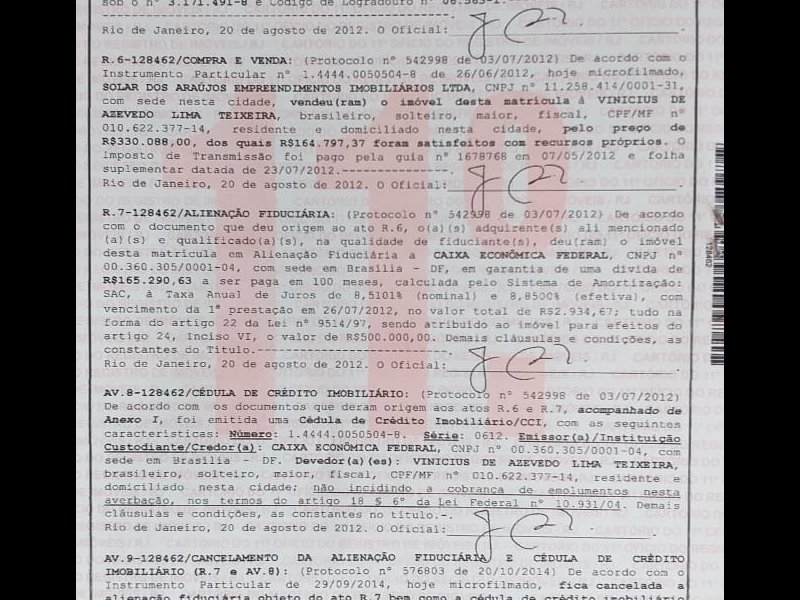 sob o nº 3.171.491-8 e Código de Logradouro nº 06.563-1.
Rio de Janeiro, 20 de agosto de 2012. O Oficial:
R.6-128462/COMPRA E VENDA: (Protocolo nº 542998 de 03/07/2012) De acordo com o
Instrumento Particular nº 1.4444.0050504-8 de 26/06/2012, hoje microfilmado,
SOLAR DOS ARAÚJOS EMPREENDIMENTOS IMOBILIÁRIOS LTDA, CNPJ nº 11.258.414/0001-31,
com sede nesta cidade, vendeu(ram) o imóvel desta matrícula à VINICIUS DE
AZEVEDO LIMA TEIXEIRA, brasileiro, solteiro, maior, fiscal, CPF/MF nº
010.622.377-14, residente e domiciliado nesta cidade, pelo preço de
R$330.088,00, dos quais R$164.797,37 foram satisfeitos com recursos próprios. O
Imposto de Transmissão foi pago pela guia nº 1678768 em 07/05/2012 e folha
suplementar datada de 23/07/2012.-----------------
Rio de Janeiro, 20 de agosto de 2012. O Oficial:
R.7-128462/ALIENAÇÃO FIDUCIÁRIA: (Protocolo nº 542998 de 03/07/2012) De acordo
com o documento que deu origem ao ato R.6, o(a)(s) adquirente(s) ali mencionado
(a)(s) e qualificado(a)(s), na qualidade de fiduciante(s), deu(ram) o imóvel
desta matrícula em Alienação Fiduciária a CAIXA ECONÔMICA FEDERAL, CNPJ nº
00.360.305/0001-04, com sede em Brasília - DF, em garantia de uma dívida de
R$165.290,63 a ser paga em 100 meses, calculada pelo Sistema de Amortização:
SAC, à Taxa Anual de Juros de 8,5101% (nominal) e 8,8500% (efetiva), com
vencimento da 1ª prestação em 26/07/2012, no valor total de R$2.934,67; tudo na
forma do artigo 22 da Lei nº 9514/97, sendo atribuído ao imóvel para efeitos do
artigo 24, Inciso VI, o valor de R$500.000,00. Demais cláusulas e condições, as
constantes do Título.-----------------
Rio de Janeiro, 20 de agosto de 2012. O Oficial:
AV.8-128462/CÉDULA DE CRÉDITO IMOBILIÁRIO: (Protocolo nº 542998 de 03/07/2012)
De acordo com os documentos que deram origem aos atos R.6 e R.7, acompanhado de
Anexo I, foi emitida uma Cédula de Crédito Imobiliário/CCI, com as seguintes
características: Número: 1.4444.0050504-8. Série: 0612. Emissor(a)/Instituição
Custodiante/Credor(a): CAIXA ECONÔMICA FEDERAL, CNPJ nº 00.360.305/0001-04, com
sede em Brasília - DF. Devedor(a)(es): VINICIUS DE AZEVEDO LIMA TEIXEIRA,
brasileiro, solteiro, maior, fiscal, CPF/MF nº 010.622.377-14, residente e
domiciliado nesta cidade; não incidindo a cobrança de emolumentos nesta
averbação, nos termos do artigo 18 § 6º da Lei Federal nº 10.931/04. Demais
cláusulas e condições, as constantes no título.-.
Rio de Janeiro, 20 de agosto de 2012. O Oficial:
AV.9-128462/CANCELAMENTO DA ALIENAÇÃO FIDUCIÁRIA E CÉDULA DE CRÉDITO
IMOBILIÁRIO (R.7 e AV.8): (Protocolo nº 576803 de 20/10/2014) De acordo com o
Instrumento Particular de 29/09/2014, hoje microfilmado, fica cancelada a
alienação fiduciária objeto do ato R.7 bem como a cédula de crédito imobiliário
128462